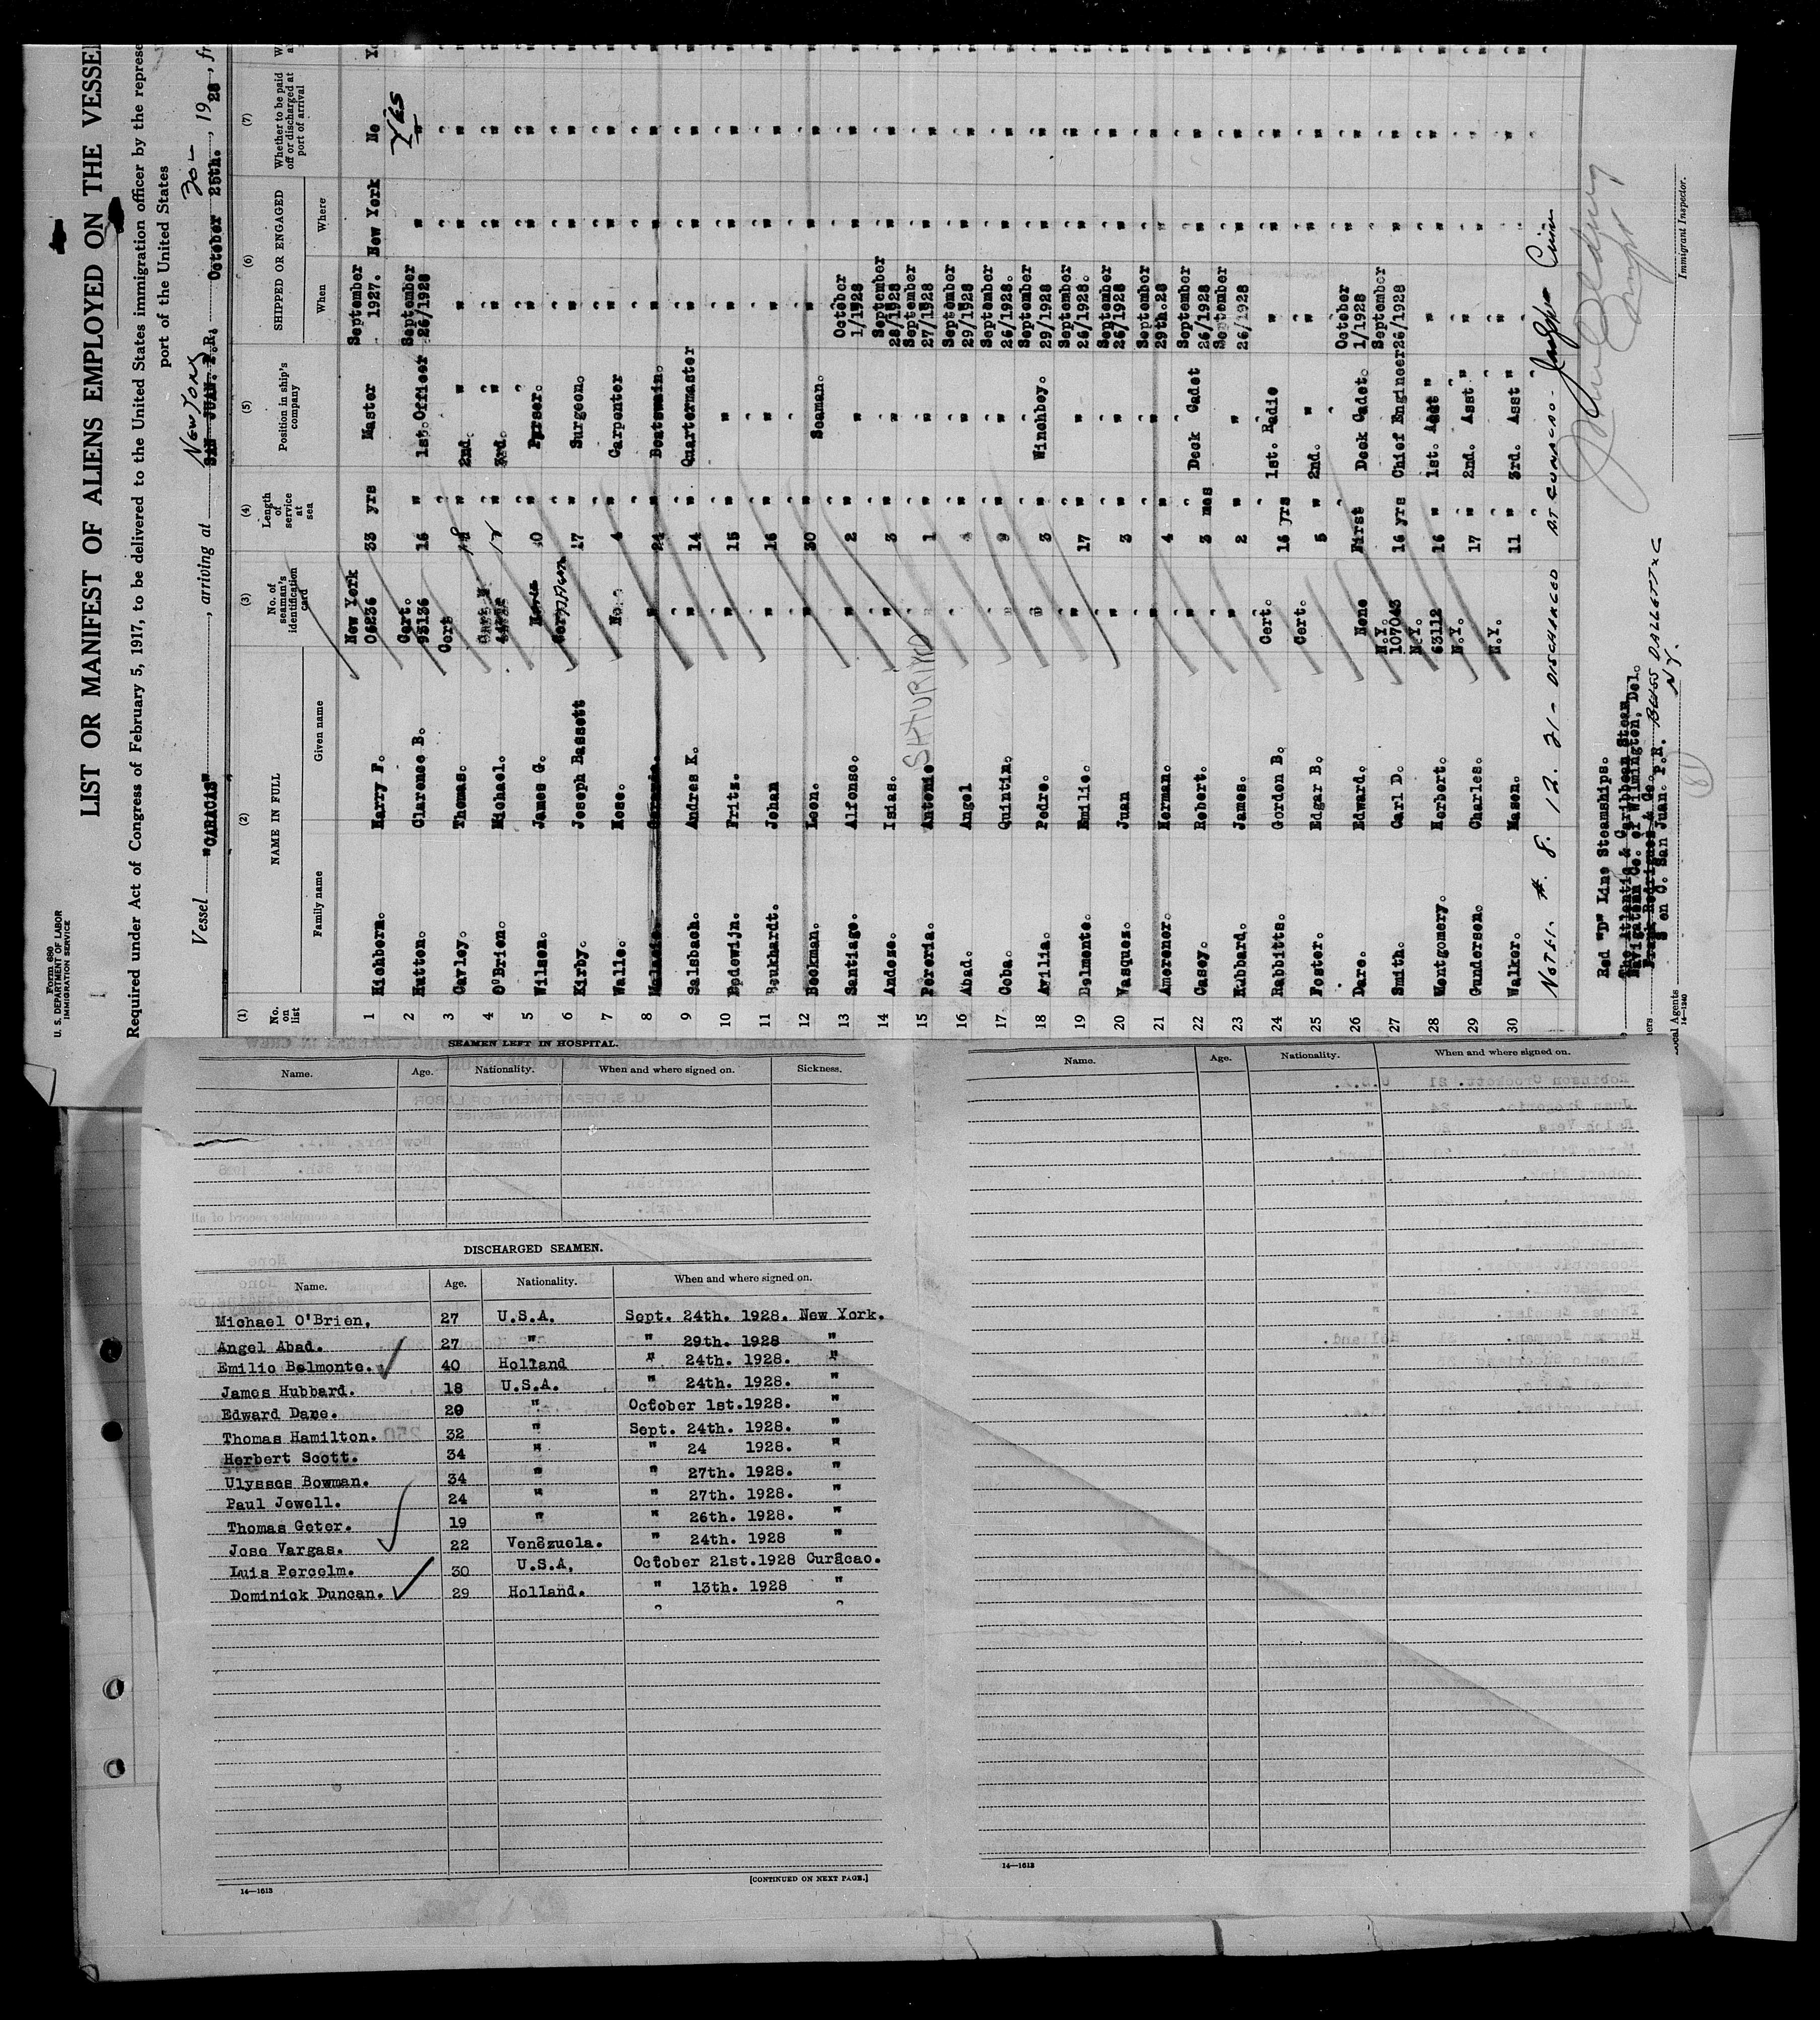 Form 680
U. S. DEPARTMENT OF LABOR
IMMIGRATION SERVICE
LIST OR MANIFEST OF ALIENS EMPLOYED ON THE VESSE
Required under Act of Congress of February 5, 1917, to be delivered to the United States immigration officer by the represe
port of the United States
Vessel "CARACAS", arriving at SAN JUAN. P.R. New York October 25th. 30-, 1928, fr
(1) (2) (3) (4) (5) (6) (7)
No. on list NAME IN FULL No. of seaman's identification card Length of service at sea Position in ship's company SHIPPED OR ENGAGED Whether to be paid off or discharged at port of arrival
Family name Given name When Where
1 Hichborn. Harry F. New York 06236 33 yrs Master September 1927. New York No
2 Hutton. Clarence B. Cert. 93136 16 " 1st. Officer September 26/1928 " " Yes
3 Cawley. Thomas. Cert " 2nd. " " " "
4 O'Brien. Michael. " 3rd. " " "
5 Wilson. James G. " Purser. " " "
6 Kirby. Joseph Bassett 17 " Surgeon. " " "
7 Walle. Mose. 4 " Carpenter " " "
8 24 " Boatswain. " " "
9 Salsbach. Andres K. " 14 " Quartermaster " " "
10 Bodewijn. Fritz. " 15 " " " " "
11 Beukhardt. Johan " 16 " " " " "
12 Beekman. Leon. " 30 " Seaman. " " "
13 Santiago. Alfonso. " 2 " " October 1/1928 " "
14 Andoze. Isias. " 3 " " September 28/1928 " "
15 Pereria. Antonio SHTURINO " 1 " " September 27/1928 " "
16 Abad. Angel " 4 " " September 29/1928 " "
17 Cobo. Quintin. " 9 " " September 26/1928. " "
18 Avilia. Pedro. " 3 " Winchboy. September 29/1928 " "
19 Belmonte. Emilio. " 17 " " September 26/1928. " "
20 Vasquez. Juan " 3 " " September 26/1928 " "
21 Amerener. Herman. " 4 " " September 29th.28 " "
22 Casey. Robert. " 3 mos Deck Cadet September 26/1928 " "
23 Hubbard. James. " 2 " " September 26/1928 " "
24 Rabbitts. Gordon B. Cert. 16 yrs 1st. Radio " " "
25 Foster. Edgar B. Cert. 5 " 2nd. " " " "
26 Dare. Edward. None First Deck Cadet. October 1/1928 " "
27 Smith. Carl D. N.Y. 107043 16 yrs Chief Engineer September 26/1928 " "
28 Montgomery. Herbert. N.Y. 63112 16 " 1st. Asst " " " "
29 Gunderson. Charles. N.Y. 17 " 2nd. Asst " " " "
30 Walker. Mason. N.Y. 11 " 3rd. Asst " " " "
NOTE:- #. 8. 12. 21- DISCHARGED AT CURACAO-
Red "D" Line Steamships.
The Atlantic & Caribbean Steam
Navigation Co. of Wilmington, Del.
Frank Rodriguez & Co. BLISS DALLETT & C
S en C. San Juan. P.R. N.Y.
Local Agents
14-1240
Immigrant Inspector.
SEAMEN LEFT IN HOSPITAL.
Name. Age. Nationality. When and where signed on. Sickness.
DISCHARGED SEAMEN.
Name. Age. Nationality. When and where signed on.
Michael O'Brien. 27 U.S.A. Sept. 24th. 1928. New York.
Angel Abad. 27 " " 29th. 1928 "
Emilio Belmonte. 40 Holland " 24th. 1928. "
James Hubbard. 18 U.S.A. " 24th. 1928. "
Edward Dare. 20 " October 1st.1928. "
Thomas Hamilton. 32 " Sept. 24th. 1928. "
Herbert Scott. 34 " " 24 1928. "
Ulysses Bowman. 34 " " 27th. 1928. "
Paul Jewell. 24 " " 27th. 1928. "
Thomas Geter. 19 " " 26th. 1928. "
Jose Vargas. 22 Venezuela. " 24th. 1928 "
Luis Percelm. 30 U.S.A. October 21st.1928 Curacao.
Dominick Duncan. 29 Holland. " 13th. 1928 "
[CONTINUED ON NEXT PAGE.]
14—1613
Name. Age. Nationality. When and where signed on.
14—1613